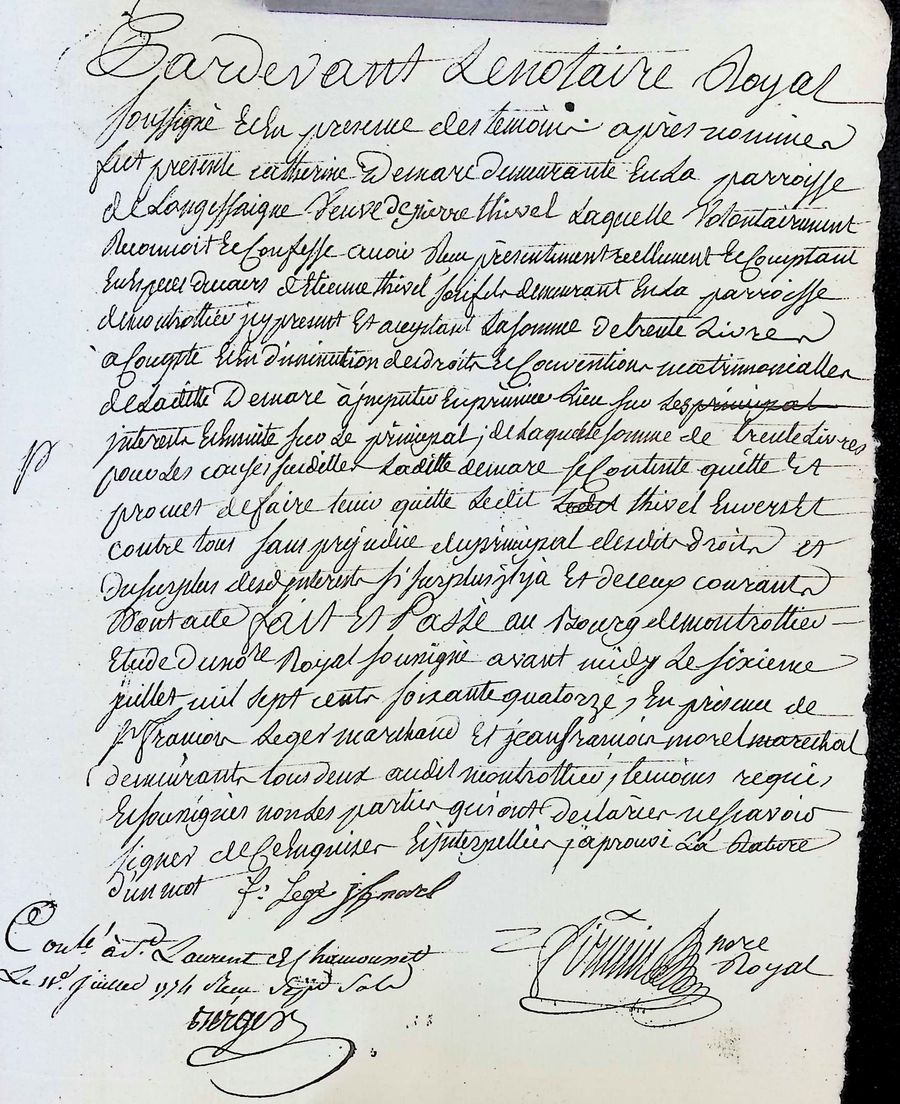 Pardevant Lenotaire Royal
soussigné Et En presence des temoins après nommes
fut présente catherine Demare demeurante En La parroisse
de Longessaigne Veuve de pierre thivel Laquelle Volontairement
Reconnoit Et Confesse avoir Reçu présentement réellement Et Comptant
En Especes du cours d'Etienne thivel son fils demeurant En La parroisse
de montrottier jcy present Et acceptant La somme de trente Livres
à Compte Et En diminution des droits Et Conventions matrimonialles
de Laditte Demare à jmputer En premier Lieu sur Les principal
jnterests Et Ensuite sur Le principal, de Laquelle somme de trente Livres
pour Les causes susdittes Laditte demare se Contente quitte Et
promet de faire tenir quitte Ledit Ledit thivel Envers Et
contre tous sans prejudice du principal desdits Droits et
du surplus desd jnterests si surplus jl y a Et de ceux courants
Dont acte fait Et Passé au Bourg de montrottier
Etude du no.re Royal soussigné avant midy Le sixieme
juillet mil sept cents soixante quatorze, En présence de
s.r françois Leger marchand Et jean françois morel marechal
demeurants tous deux audit montrottier, temoins requis
Et soussignés non Les parties qui ont declarées ne sçavoir
signer de Ce Enquises Et jnterpellées j'aprouve La Rature
d'un mot f: Legé jf morel
Conlé à St Laurent de Chamousset
Le 11.e juillet 1774 Reçu Sept Sols
no.re
Royal